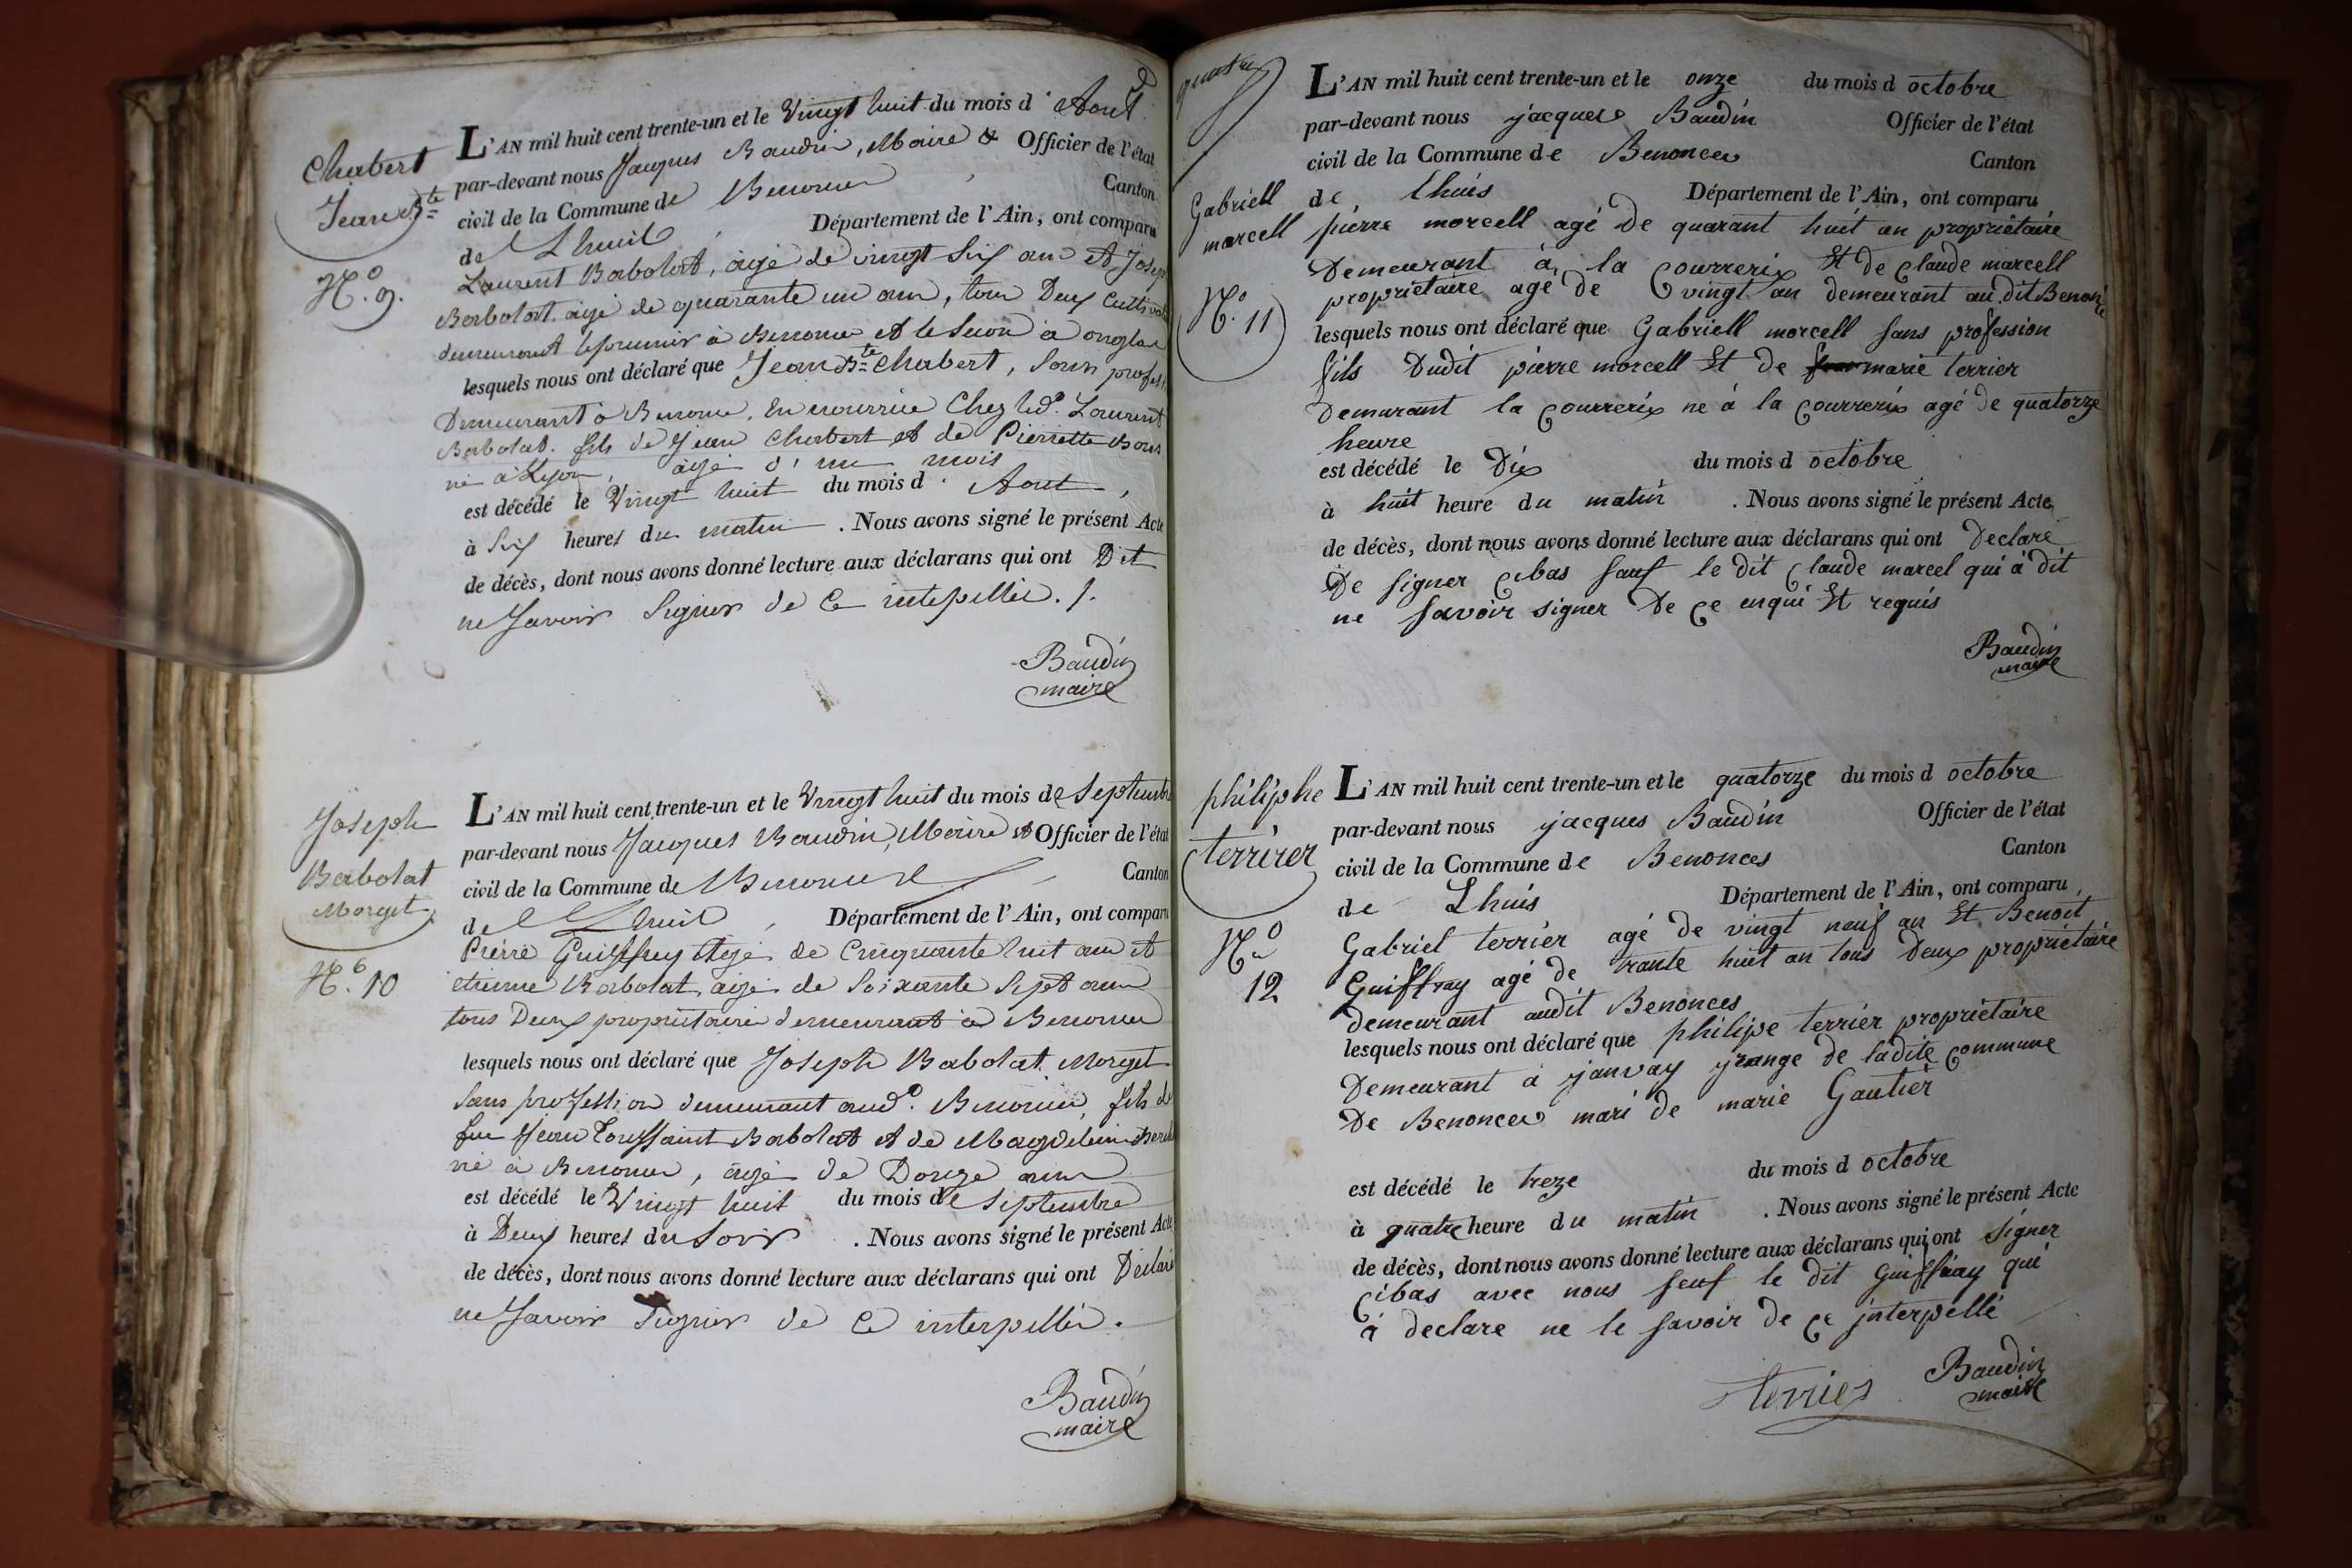 Chabert
Jean Bte
N.o 9.
L'AN mil huit cent trente-un et le Vingt huit du mois d'Aout
par-devant nous Jacques Baudin, Maire & Officier de l'état
civil de la Commune de Benonce Canton
de Lhuis Département de l'Ain, ont comparu
Laurent Babolat, agé de vingt six ans et Joseph
Babolat agé de quarante un ans, tous Deux Cultivat
demeurant le premier à Benonce et le Secon à
lesquels nous ont déclaré que Jean Bte Chabert, Sans profess
Demeurant à Benonce, En nourrice Chez led. Laurent
Babolat. fils de Jean Chabert et de Pierrette
né à Lyon, agé d'un mois
est décédé le Vingt huit du mois d'Aout,
à Six heures du matin. Nous avons signé le présent Acte
de décès, dont nous avons donné lecture aux déclarans qui ont Dit
ne Savoir Signer de Ce intepellés./.
Baudin
maire
Joseph
Babolat
Morget
N.o 10
L'AN mil huit cent trente-un et le Vingt huit du mois de Septembre
par-devant nous Jacques Baudin, Maire et Officier de l'état
civil de la Commune de Benonce Canton
de Lhuis, Département de l'Ain, ont comparu
Pierre Guiffrey Agé de Cinquante huit ans et
etienne Babolat, agé de Soixante Sept ans
tous Deux propriétaires demeurant à Benonce
lesquels nous ont déclaré que Joseph Babolat Morget
Sans profession demeurant aud. Benonce, fils de
feu Jean Toussaint Babolat et de Magdeleine
né à Benonce, agé de Douze ans
est décédé le Vingt huit du mois de Septembre
à Deux heures du Soir. Nous avons signé le présent Acte
de décès, dont nous avons donné lecture aux déclarans qui ont Déclaré
ne Savoir Signer de Ce interpellés.
Baudin
maire
Gabriell
marcell
N.o 11
L'AN mil huit cent trente-un et le onze du mois d octobre
par-devant nous jacques Baudin Officier de l'état
civil de la Commune de Benonces Canton
de Lhuis Département de l'Ain, ont comparu
pierre morcell agé de quarant huit an propriétaire
Demeurant à la Courrerix Et de Claude marcell
propriétaire agé de vingt an demeurant au dit Benonce
lesquels nous ont déclaré que Gabriell morcell sans profession
fils Dudit pierre morcell Et de marie terrier
Demurant la Courrerix ne à la Courrerix agé de quatorze
heure
est décédé le Dix du mois d octobre
à huit heure du matin. Nous avons signé le présent Acte
de décès, dont nous avons donné lecture aux déclarans qui ont Declaré
De signer Cibas sauf le dit Claude marcel qui à dit
ne savoir signer De Ce enqui Et requis
Baudin
maire
philiphe
terrirer
No
12
L'AN mil huit cent trente-un et le quatorze du mois d octobre
par-devant nous jacques Baudin Officier de l'état
civil de la Commune de Benonces Canton
de Lhuis Département de l'Ain, ont comparu,
Gabriel terrier agé de vingt neuf an Et Benoit
Guiffray agé de trante huit an tous Deux propriétaire
demeurant audit Benonces
lesquels nous ont déclaré que philipe terrier propriétaire
Demeurant à janvay grange de ladite Commune
De Benonces mari de marie Gautier
est décédé le treze du mois d octobre
à quatre heure du matin. Nous avons signé le présent Acte
de décès, dont nous avons donné lecture aux déclarans qui ont signer
Cibas avec nous seuf le dit Guiffray qui
à declare ne le savoir de Ce jnterpellé
terrier Baudin
maire